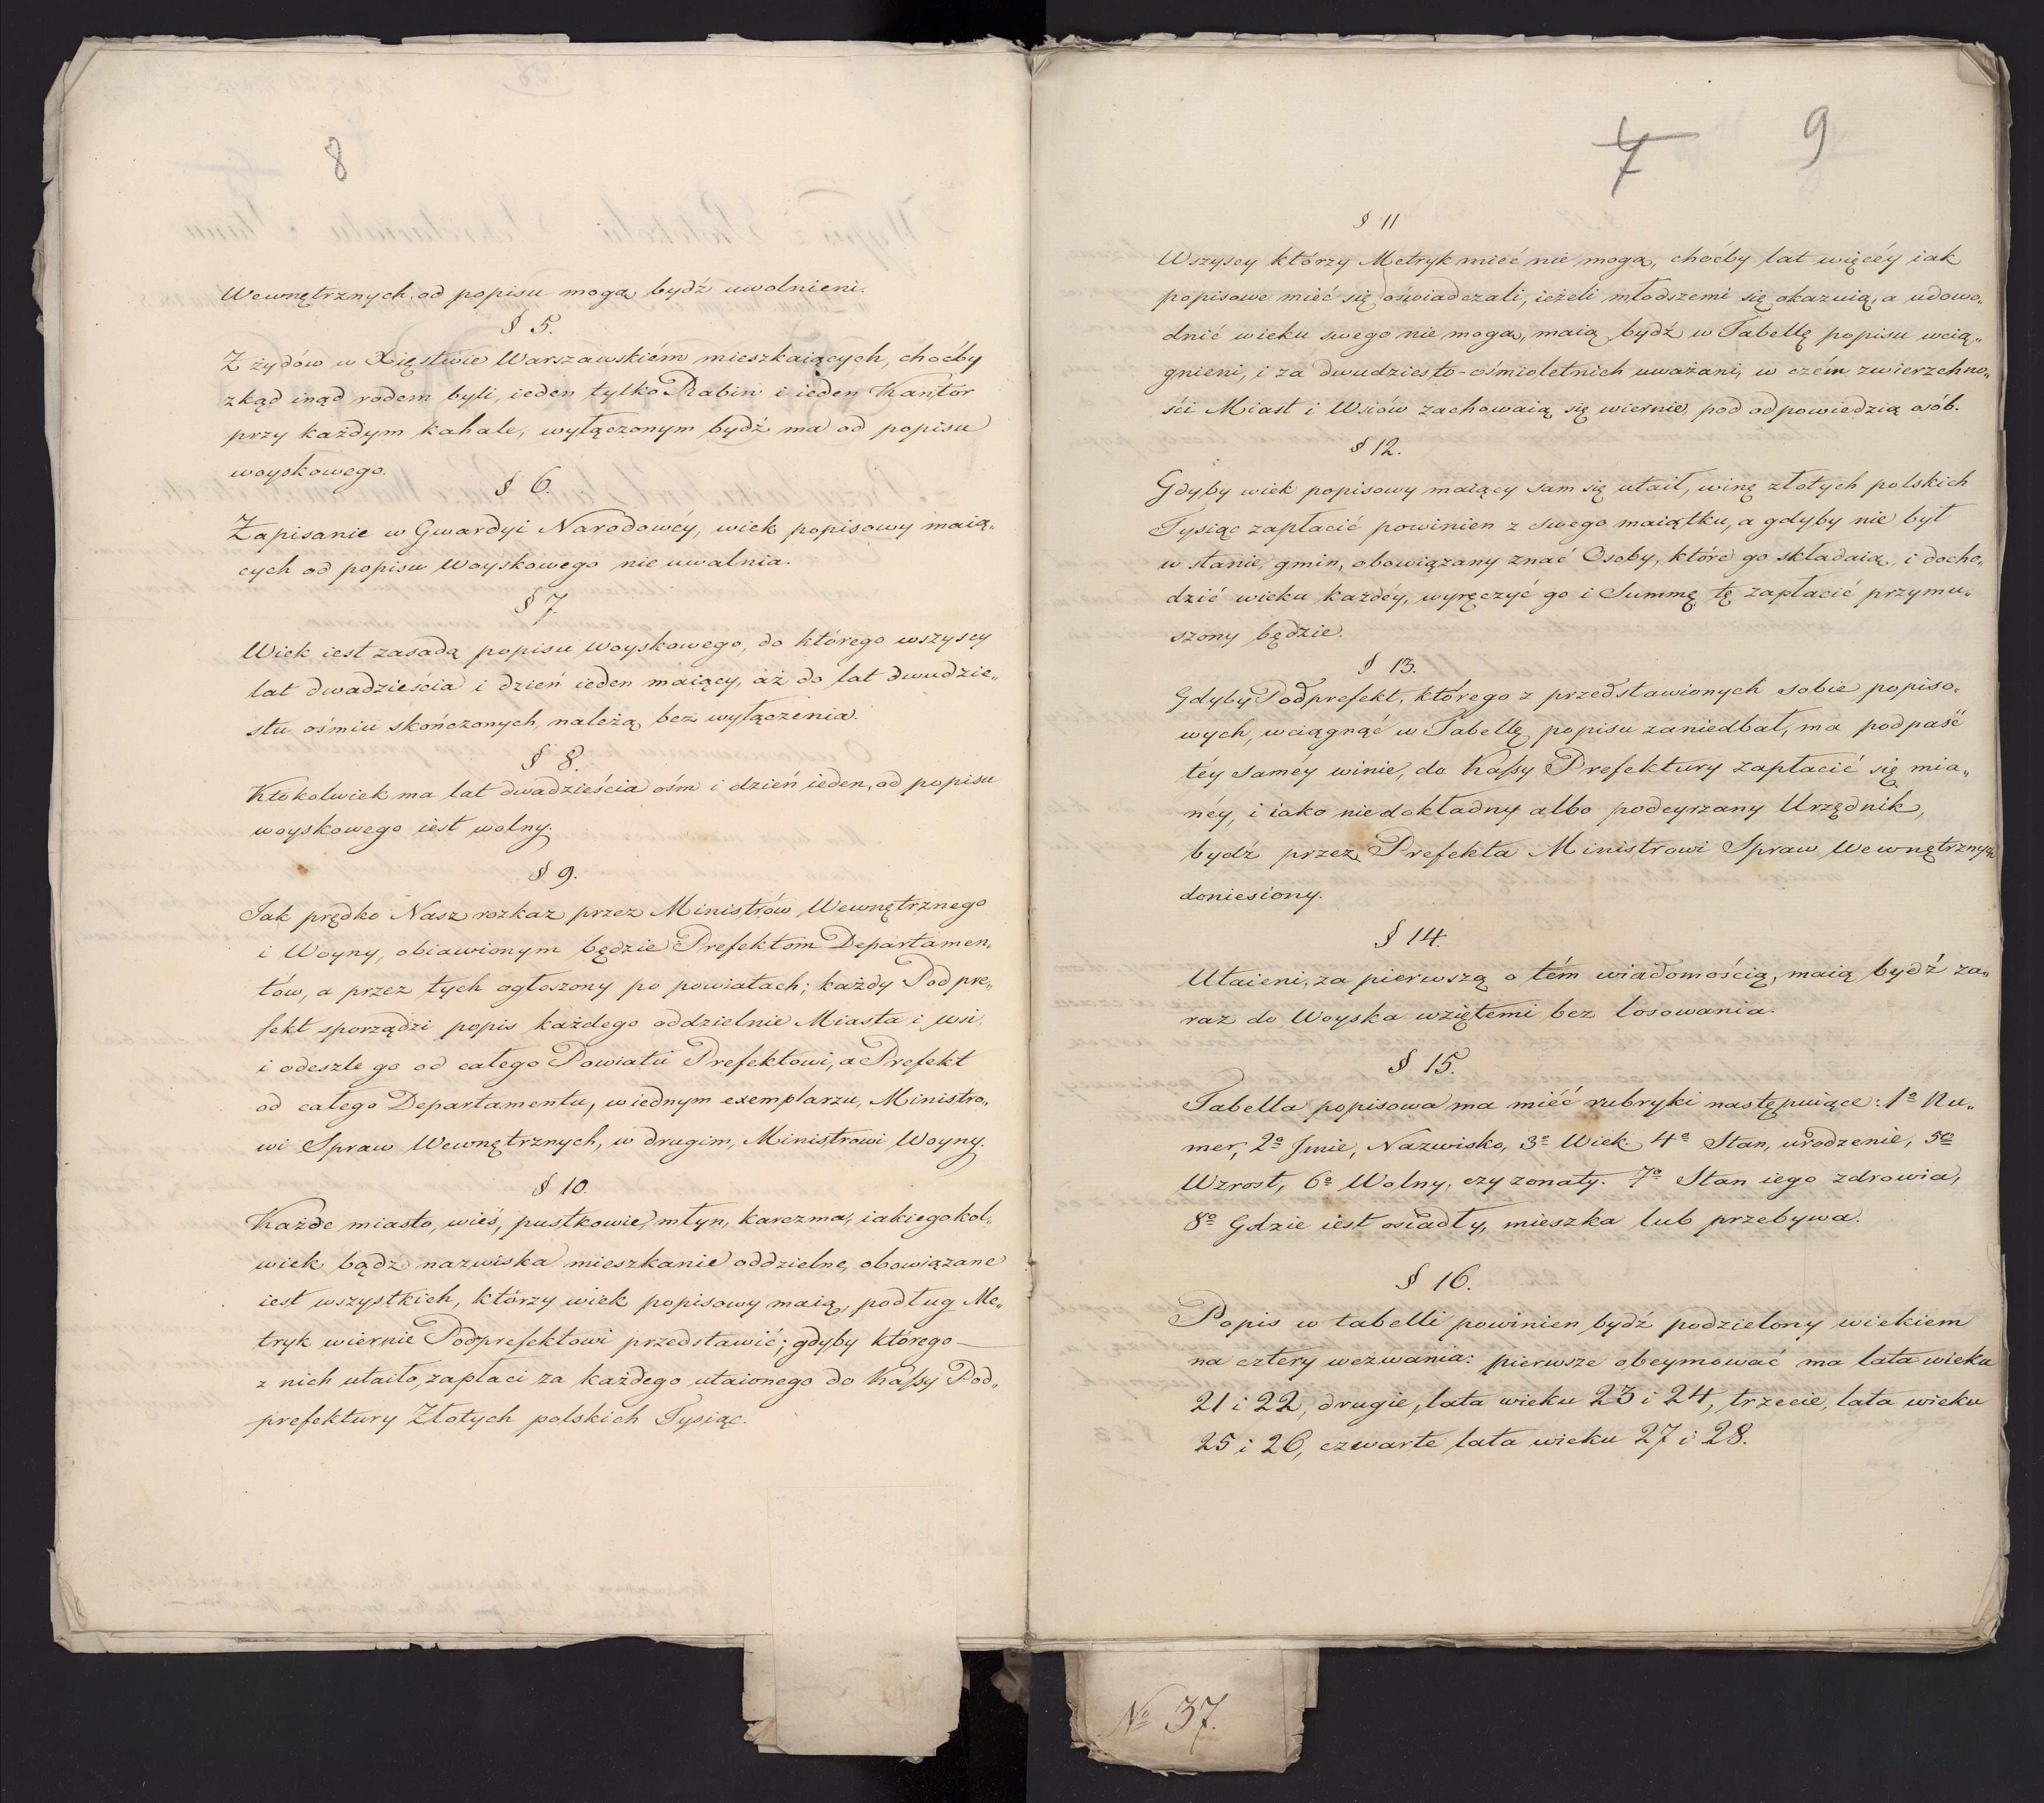 8
Wewnętrznych, od popisu mogą bydź uwolnieni.
§ 5.
Z żydów w Xięstwie Warszawskiém mieszkaiących, choćby
zkąd inąd rodem byli, ieden tylko Rabin i ieden Kantor
przy każdym kahale, wyłączonym bydź ma od popisu
woyskowego.
§ 6.
Zapisanie w Gwardyi Narodowéy, wiek popisowy maią„
cych od popisu Woyskowego nie uwalnia.
§ 7.
Wiek iest zasadą popisu woyskowego, do którego wszyscy
lat dwadzieścia i dzień ieden maiący, aż do lat dwudzie„
stu ośmiu skończonych, należą bez wyłączenia.
§ 8.
Ktokolwiek ma lat dwadzieścia ośm i dzień ieden, od popisu
woyskowego iest wolny.
§ 9.
Jak prędko Nasz rozkaz przez Ministrów Wewnętrznego
i Woyny, obiawionym będzie Prefektom Departamen„
tów, a przez tych ogłoszony po powiatach; każdy Pod pre„
fekt sporządzi popis każdego oddzielnie Miasta i wsi,
i odeszle go od całego Powiatu Prefektowi, a Prefekt
od całego Departamentu, w iednym exemplarzu, Ministro„
wi Spraw Wewnętrznych, w drugim, Ministrowi Woyny.
§ 10.
Każde miasto, wieś, pustkowie, młyn, karczma, iakiegokol„
wiek bądź nazwiska mieszkanie oddzielne, obowiązane
iest wszystkich, którzy wiek popisowy maią, podług Me„
tryk wiernie Podprefektowi przedstawić; gdyby którego
z nich utaiło, zapłaci za każdego utaionego do Kassy Pod„
prefektury Złotych polskich Tysiąc.
7 9
§ 11
Wszyscy którzy Metryk mieć nie mogą, choćby lat więcéy iak
popisowe mieć się oświadczali, ieżeli młodszemi się okazuią, a udowo„
dnić wieku swego nie mogą, maią bydź w Tabellę popisu wcią„
gnieni, i za dwudziesto-ośmioletnich uważani, w czém zwierzchno„
ści Miast i Wsiów zachowaią się wiernie, pod odpowiedzią osób.
§ 12.
Gdyby wiek popisowy maiący sam się utaił, winę złotych polskich
Tysiąc zapłacić powinien z swego maiątku, a gdyby nie był
w stanie, gmin, obowiązany znać Osoby, które go składaią, i docho„
dzić wieku każdéy, wyręczyć go i Summę tę zapłacić przymu„
szony będzie.
§ 13.
Gdyby Podprefekt, którego z przedstawionych sobie popiso„
wych, wciągnąć w Tabellę popisu zaniedbał, ma podpaść
téy saméy winie, do Kassy Prefektury zapłacić się mia„
néy, i iako niedokładny albo podeyrzany Urzędnik,
bydź przez Prefekta Ministrowi Spraw Wewnętrznych
doniesiony.
§ 14.
Utaieni, za pierwszą o tém wiadomością, maią bydź za„
raz do Woyska wziętemi bez losowania.
§ 15.
Tabella popisowa ma mieć rubryki następuiące: 1º Nu„
mer, 2º Jmie, Nazwisko, 3º Wiek. 4º Stan, urodzenie, 5º
Wzrost, 6º Wolny, czy zonaty. 7º Stan iego zdrowia,
8º Gdzie iest osiadły, mieszka lub przebywa.
§ 16.
Popis w tabelli powinien bydź podzielony wiekiem
na cztery wezwania: pierwsze obeymować ma lata wieku
21 i 22, drugie, lata wieku 23 i 24, trzecie, lata wieku
25 i 26, czwarte lata wieku 27 i 28.
Nº 37.